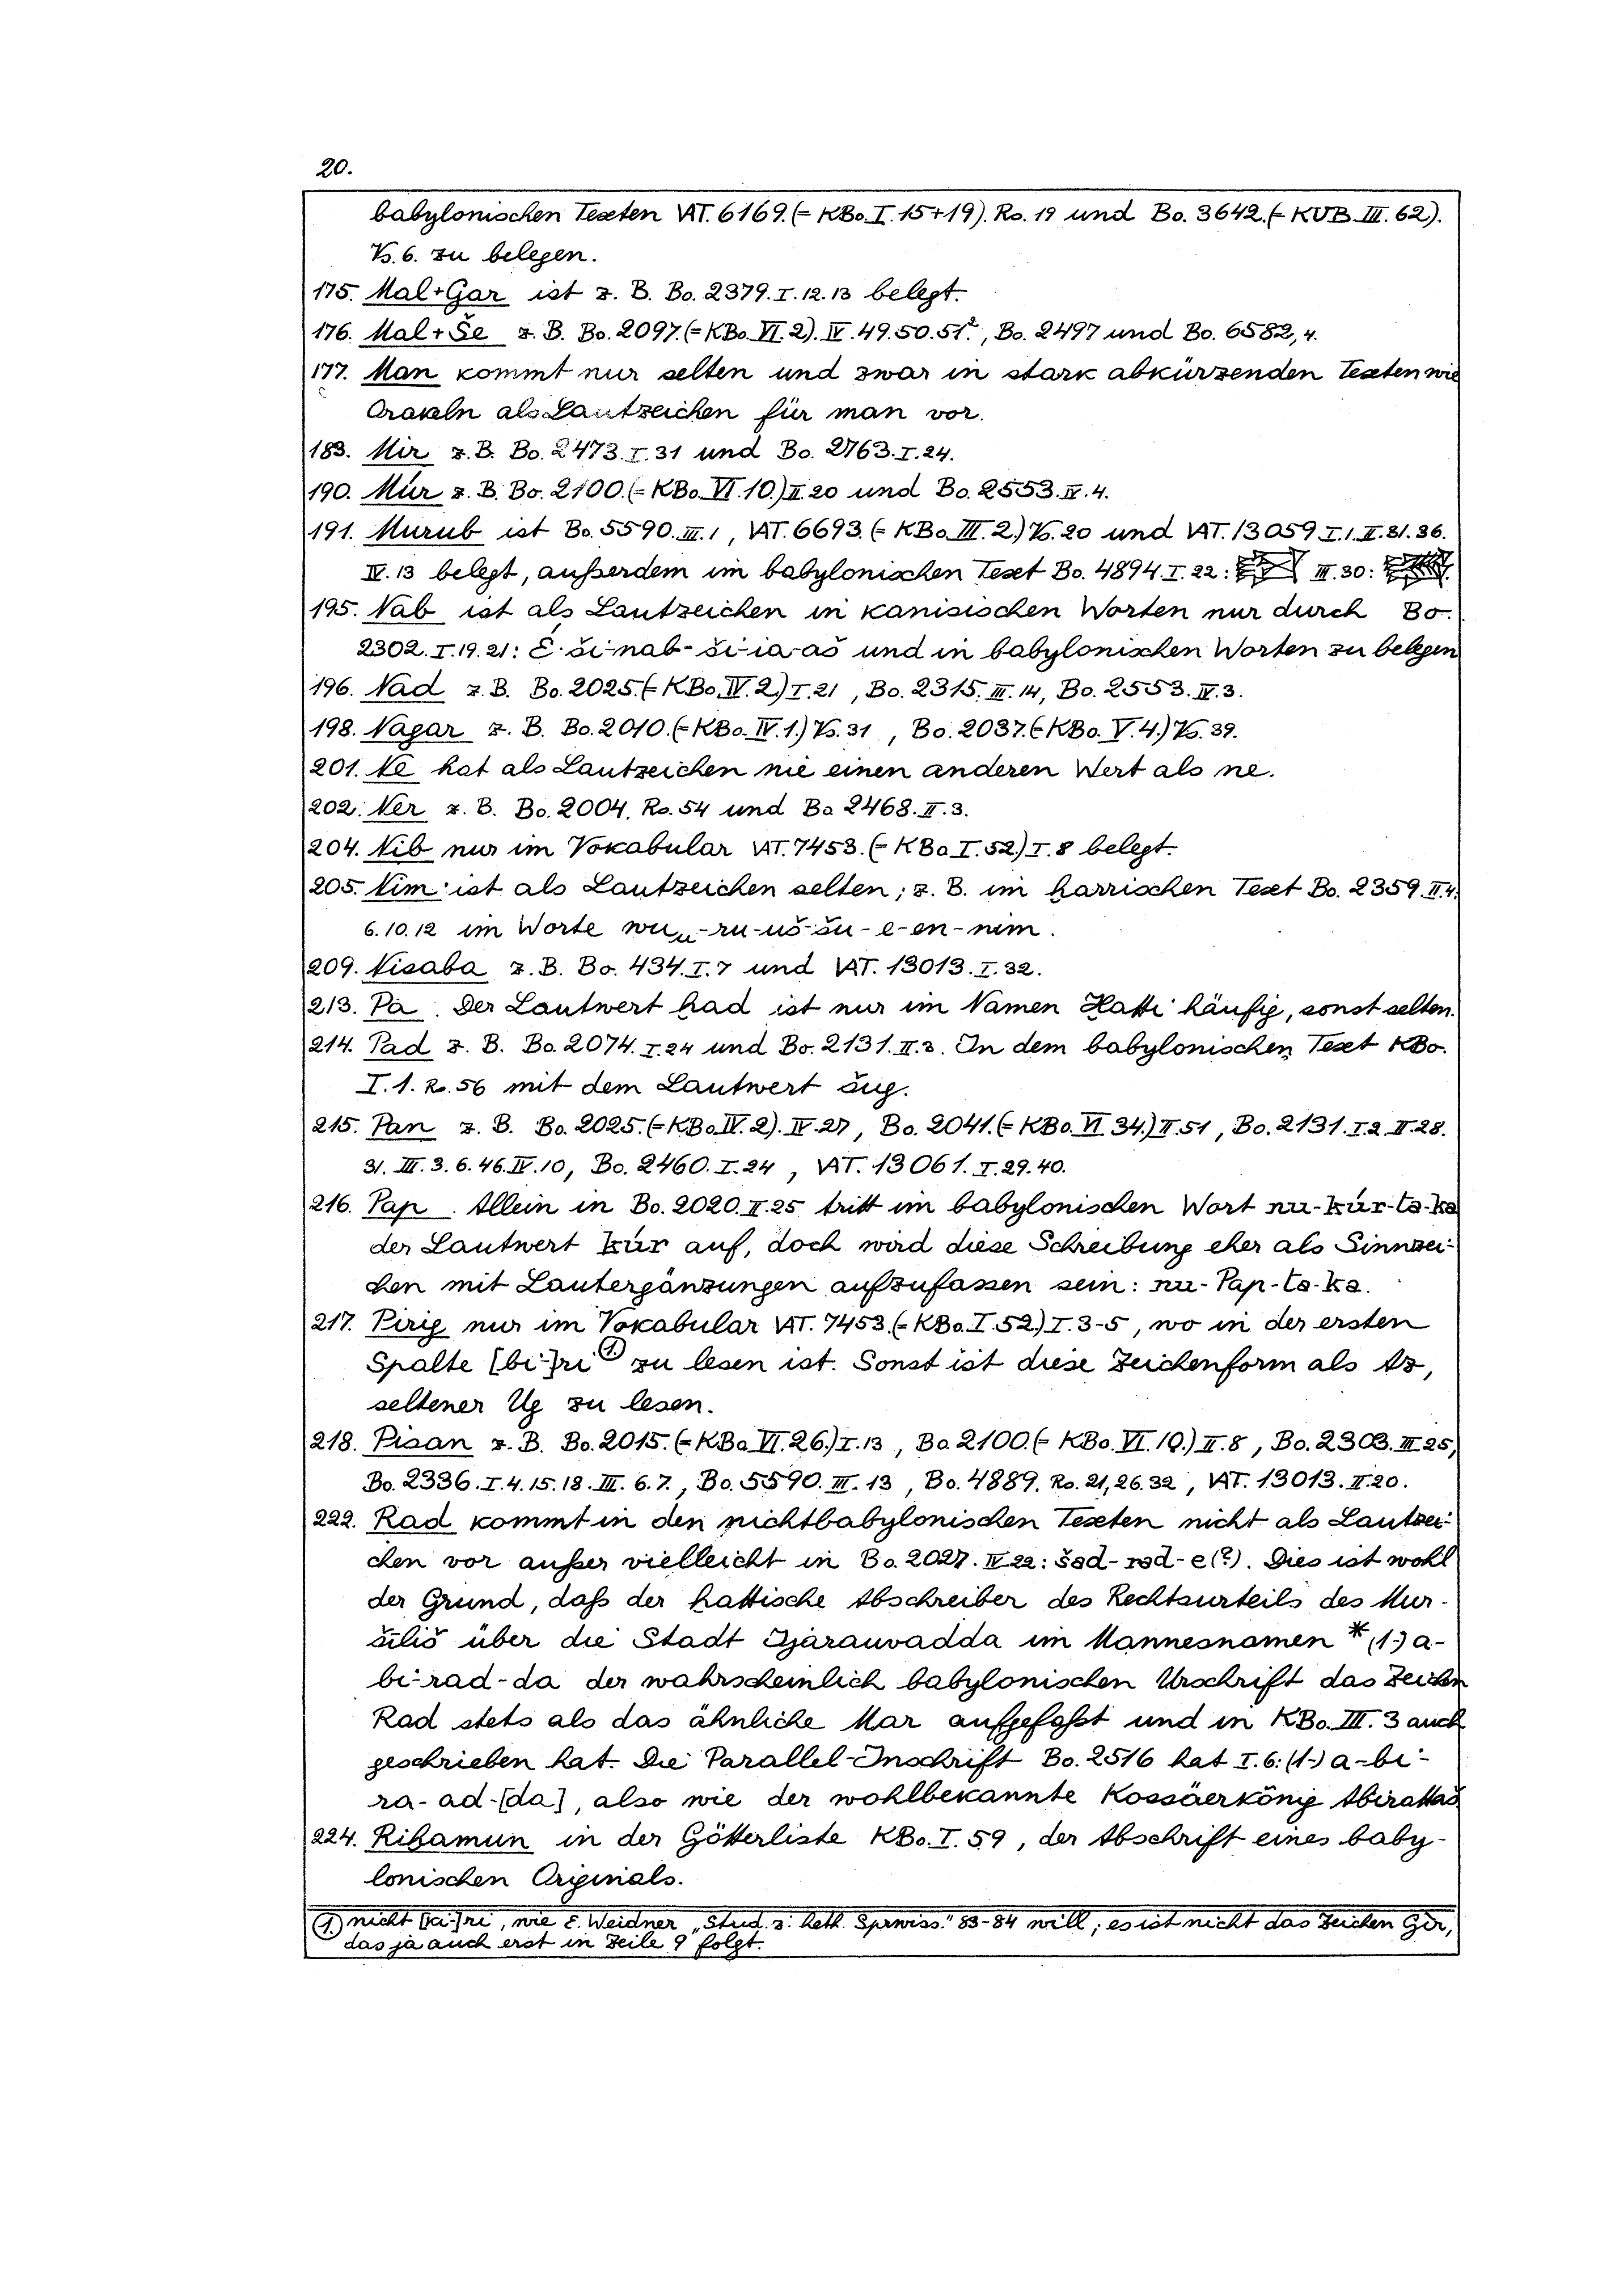 20.
babylonischen Texten VAT. 6169.(= KBo. I. 15+19). Ro. 19 und Bo. 3642.(= KUB. III. 62).
Vs. 6. zu belegen.
175. Mal+Gar ist z. B. Bo. 2379. I. 12. 13 belegt.
176. Mal+Še z. B. Bo. 2097.(= KBo. VI. 2). IV. 49. 50. 51?, Bo. 2497 und Bo. 6582, 4.
177. Man kommt nur selten und zwar in stark abkürzenden Texten wie
Orakeln als Lautzeichen für man vor.
183. Mir z. B. Bo. 2473. I. 31 und Bo. 2763. I. 24.
190. Múr z. B. Bo. 2100.(= KBo. VI. 10.) II. 20 und Bo. 2553. IV. 4.
191. Murub ist Bo. 5590. III. 1, VAT. 6693.(= KBo. III. 2.) Vs. 20 und VAT. 13059. I. 1. II. 31. 36.
IV. 13 belegt, außerdem im babylonischen Text Bo. 4894. I. 22: III. 30:
195. Nab ist als Lautzeichen in kanisischen Worten nur durch Bo.
2302. I. 19. 21: É-ši-nab-ši-ia-aš und in babylonischen Worten zu belegen
196. Nad z. B. Bo. 2025.(= KBo. IV. 2.) I. 21, Bo. 2315. III. 14, Bo. 2553. IV. 3.
198. Nagar z. B. Bo. 2010.(= KBo. IV. 1.) Vs. 31, Bo. 2037.(= KBo. V. 4.) Vs. 39.
201. Ne hat als Lautzeichen nie einen anderen Wert als ne.
202. Ner z. B. Bo. 2004. Ro. 54 und Bo. 2468. II. 3.
204. Nib nur im Vokabular VAT. 7453.(= KBo. I. 52.) I. 8 belegt.
205. Nim ist als Lautzeichen selten; z. B. im ḫarrischen Text Bo. 2359. II. 4.
6. 10. 12 im Worte wuᵤ-ru-uš-šu-e-en-nim.
209. Nisaba z. B. Bo. 434. I. 7 und VAT. 13013. I. 32.
213. Pa. Der Lautwert ḫad ist nur im Namen Ḫatti häufig, sonst selten.
214. Pad z. B. Bo. 2074. I. 24 und Bo. 2131. II. 3. In dem babylonischen Text KBo.
I. 1. Ro. 56 mit dem Lautwert šug.
215. Pan z. B. Bo. 2025.(= KBo. IV. 2). IV. 27, Bo. 2041.(= KBo. VI. 34.) II. 51, Bo. 2131. I. 2. II. 28.
31. III. 3. 6. 46. IV. 10, Bo. 2460. I. 24, VAT. 13061. I. 29. 40.
216. Pap. Allein in Bo. 2020. II. 25 tritt im babylonischen Wort nu-kúr-ta-ka
der Lautwert kúr auf, doch wird diese Schreibung eher als Sinnzei-
chen mit Lautergänzungen aufzufassen sein: nu-Pap-ta-ka.
217. Pirig nur im Vokabular VAT. 7453.(= KBo. I. 52.) I. 3-5, wo in der ersten
Spalte [bi-]ri ① zu lesen ist. Sonst ist diese Zeichenform als Az,
seltener Ug zu lesen.
218. Pisan z. B. Bo. 2015.(= KBo. VI. 26.) I. 13, Bo. 2100.(= KBo. VI. 10.) II. 8, Bo. 2303. III. 25,
Bo. 2336. I. 4. 15. 18. III. 6. 7., Bo. 5590. III. 13, Bo. 4889. Ro. 21, 26. 32, VAT. 13013. II. 20.
222. Rad kommt in den nichtbabylonischen Texten nicht als Lautzei-
chen vor außer vielleicht in Bo. 2027. IV 22: šad-rad-e(?). Dies ist wohl
der Grund, daß der ḫattische Abschreiber des Rechtsurteils des Mur-
šiliš über die Stadt Ijarauvadda im Mannesnamen *(1-)a-
bi-rad-da der wahrscheinlich babylonischen Urschrift das Zeichen
Rad stets als das ähnliche Mar aufgefaßt und in KBo. III. 3 auch
geschrieben hat. Die Parallel-Inschrift Bo. 2516 hat I. 6: (1-) a-bi-
ra-ad-[da], also wie der wohlbekannte Kossäerkönig Abirattaš
224. Riḫamun in der Götterliste KBo. I. 59, der Abschrift eines baby-
lonischen Originals.
① nicht [gi-]ri, wie E. Weidner „Stud. z. heth. Sprwiss." 83-84 will; es ist nicht das Zeichen Gir,
das ja auch erst in Zeile 9 folgt.